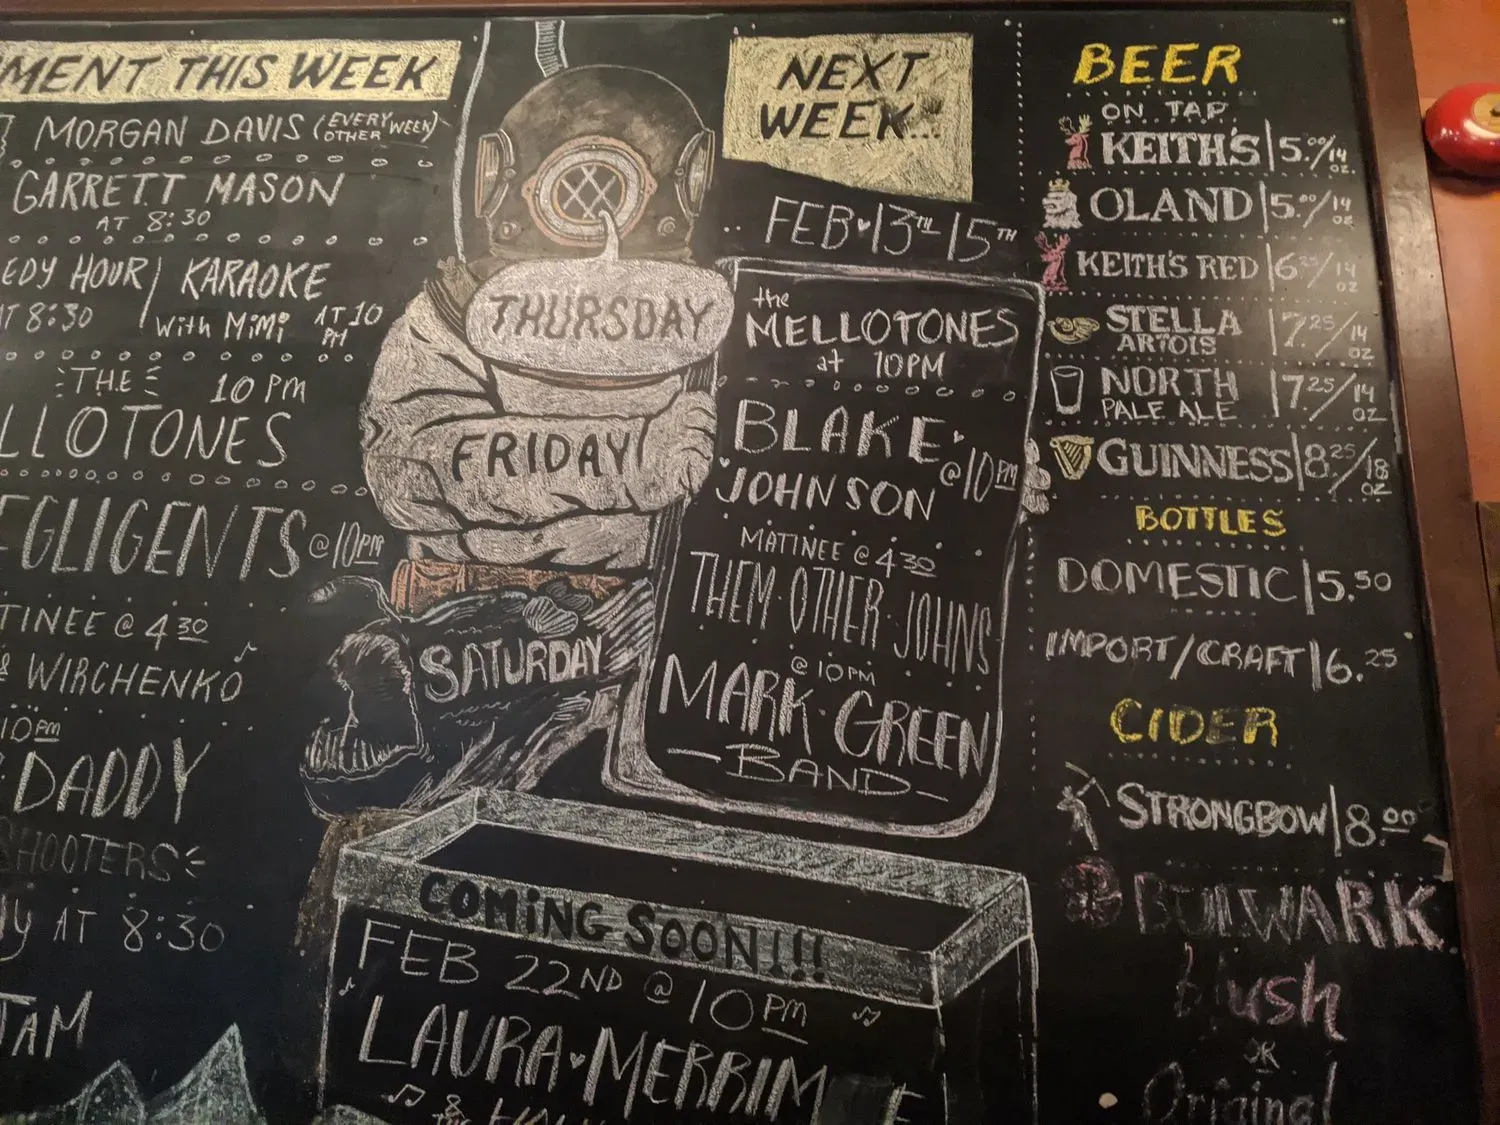 MENT THIS WEEK
MORGAN DAVIS (EVERY OTHER WEEK)
GARRETT MASON
AT 8:30
EDY HOUR KARAOKE
AT 8:30 with MiMi AT 10 PM
THE 10 PM
LLOTONES
EGLIGENTS @ 10PM
TINEE @ 4 30
& WIRCHENKO
10PM
DADDY
SHOOTERS
AT 8:30
JAM
THURSDAY
FRIDAY
SATURDAY
NEXT
WEEK...
FEB 13TH-15TH
the
MELLOTONES
at 10PM
BLAKE
JOHNSON @10PM
MATINEE @ 4 30
THEM OTHER JOHNS
@ 10PM
MARK GREEN
BAND
COMiNG SOON!!!
FEB 22ND @ 10PM
LAURA MERRIM
&
BEER
ON TAP
KEITH'S 5.00/14 OZ.
OLAND 5.00/14 OZ
KEITH'S RED 6 25/14 OZ
STELLA
ARTOIS 7.25/14 OZ
NORTH
PALE ALE 7 25/14 OZ
GUINNESS 8 25/18 OZ
BOTTLES
DOMESTIC 5.50
IMPORT/CRAFT 6.25
CIDER
STRONGBOW 8.00
BULWARK
blush
OR
Original